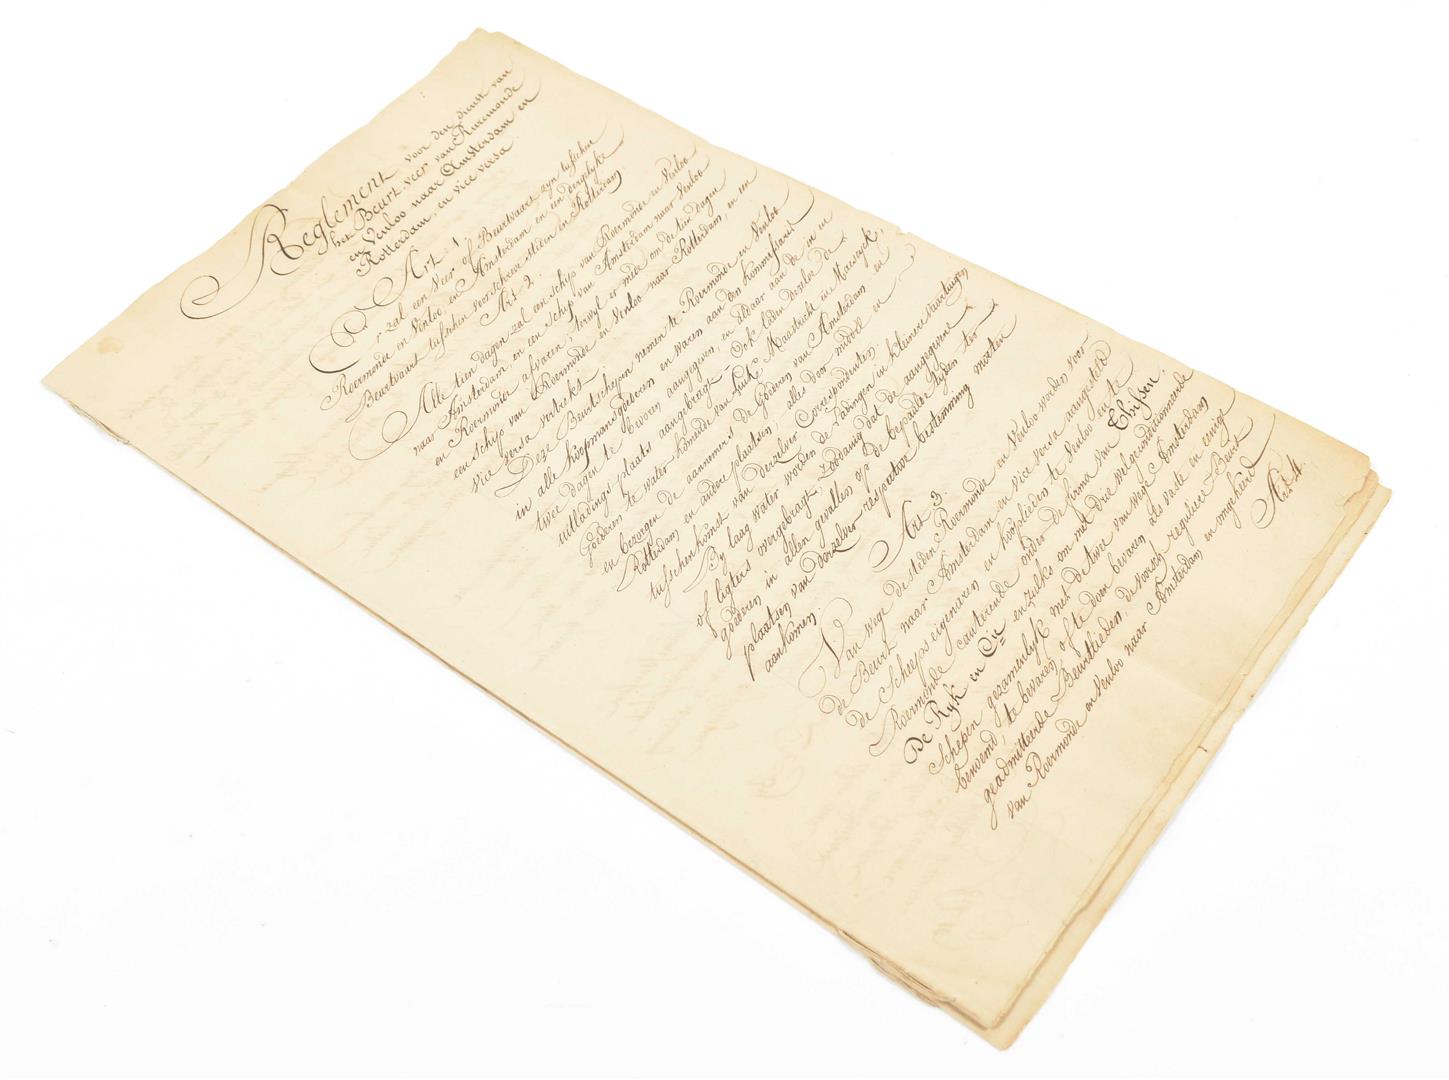 Reglement voor den dienst van
het Beurt veer van Ruremonde
en Venloo naar Amsterdam en
Rotterdam, en vice versa
Art 1
Er zal een Veer of Beurtvaart zyn tusschen
Roermonde en Venloo en Amsterdam en een dergelyke
Beurtvaart tusschen voorschreve steden en Rotterdam
Art 2.
Alle tien dagen zal een schip van Roermonde en Venloo
naar Amsterdam, en een schip van Amsterdam naar Venloo
en Roermonde afvaren, terwyl er mede om de tien dagen
een schip van Roermonde en Venloo naar Rotterdam, en een
vice versa vertrekt.
Deze Beurtschepen nemen te Roermonde en Venloo
in alle koopmansgoederen en waren aan den kommissaris
twee dagen te bevoren aangegeven, en aldaar aan de in en
uitladings plaats aangebragt. Ook laden dezelve de
goederen te water komende van Luik, Maastricht en Maeseyck,
en bezorgen de aannemers de Goederen van Amsterdam en
Rotterdam en andere plaatsen, alles door middel en
tusschenkomst van derzelver Correspondenten.
By laag water worden de Ladingen in kleine vaartuigen
of ligters overgebragt, zoodanig dat de aangegevene
goederen in allen gevallen op de bepaalde tyden ter
plaatsen van derzelver respective bestemming moeten
aankomen.
Art 3
Van wege de steden Roermonde en Venloo worden voor
de Beurt naar Amsterdam en vice versa aangesteld
de Scheeps eigenaren en kooplieden te Venloo en te
Roermonde canterende onder de firma van Thyssen,
De Ryk en Cie en zulks om met drie welgeconditioneerde
schepen gezamenlyk met de twee van wege Amsterdam
benoemd, te bevaren of te doen bevaren als vaste en eenig
geadmitteerde Beurtlieden, de voorsch. reguliere Beurt
van Roermonde en Venloo naar Amsterdam en omgekeerd
Art 4.